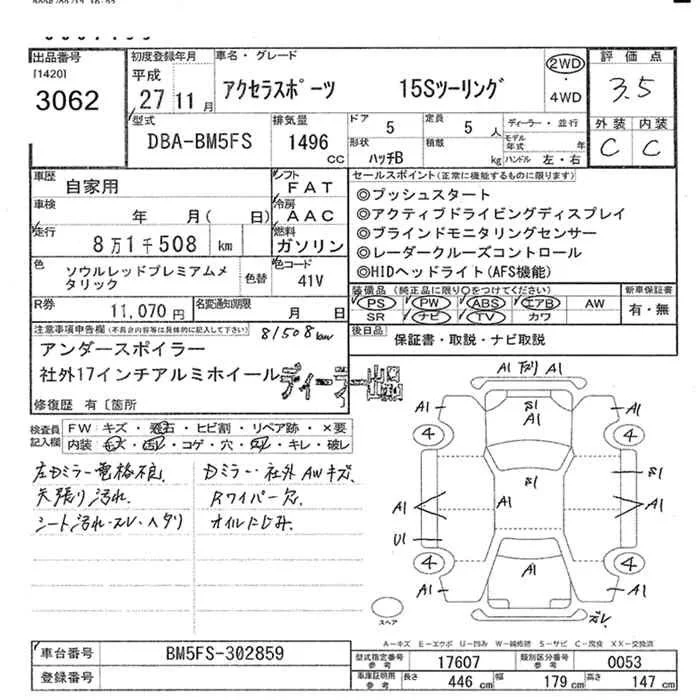 出品番号
[1420]
3062
初度登録年月
平成
27 11月
車名・グレード
アクセラスポーツ 15Sツーリング
2WD
・
4WD
評価点
3.5
外装 内装
C C
型式
DBA-BM5FS
排気量
1496
CC
ドア 5
定員 5 人
ディーラー・並行
形状
ハッチB
積載 kg
モデル年式 年
ハンドル 左・右
車歴 自家用
シフト
FAT
車検 年 月( 日)
冷房
AAC
走行 8万1千508 km
燃料
ガソリン
色
ソウルレッドプレミアムメタリック
色替
色コード
41V
R券 11,070円
名変通知期限 月 日
セールスポイント(正常に機能するものに限ります)
◎プッシュスタート
◎アクティブドライビングディスプレイ
◎ブラインドモニタリングセンサー
◎レーダークルーズコントロール
◎HIDヘッドライト(AFS機能)
装備品(純正品に限り○をつけてください)
PS PW ABS エアB AW
SR ナビ TV カワ
新車保証書
有・無
後日品
保証書・取説・ナビ取説
注意事項申告欄(不具合内容等は具体的に記入して下さい)
81508km
アンダースポイラー
社外17インチアルミホイール
ディーラー出品
修復歴 有〔箇所
検査員記入欄
FW:キズ・飛石・ヒビ割・リペア跡・×要
内装:キズ・汚れ・コゲ・穴・凹み・キレ・破レ
左Dミラー電格不良
天張り汚れ
シート汚れ・スレ・ヘタリ
Dミラー・社外AWキズ
Rワイパー欠
オイルにじみ
A1 A1
A1 A1 A1
4 4
A1 A1 A1
U1
4 4
A1 A1 A1
スペア
A-キズ E-エクボ U-凹み W-補修跡 S-サビ C-腐食 XX-交換済
車台番号 BM5FS-302859
登録番号
型式指定番号
参考
17607
類別区分番号
参考
0053
車庫証明用
参考
長さ 446 cm 幅 179 cm 高さ 147 cm